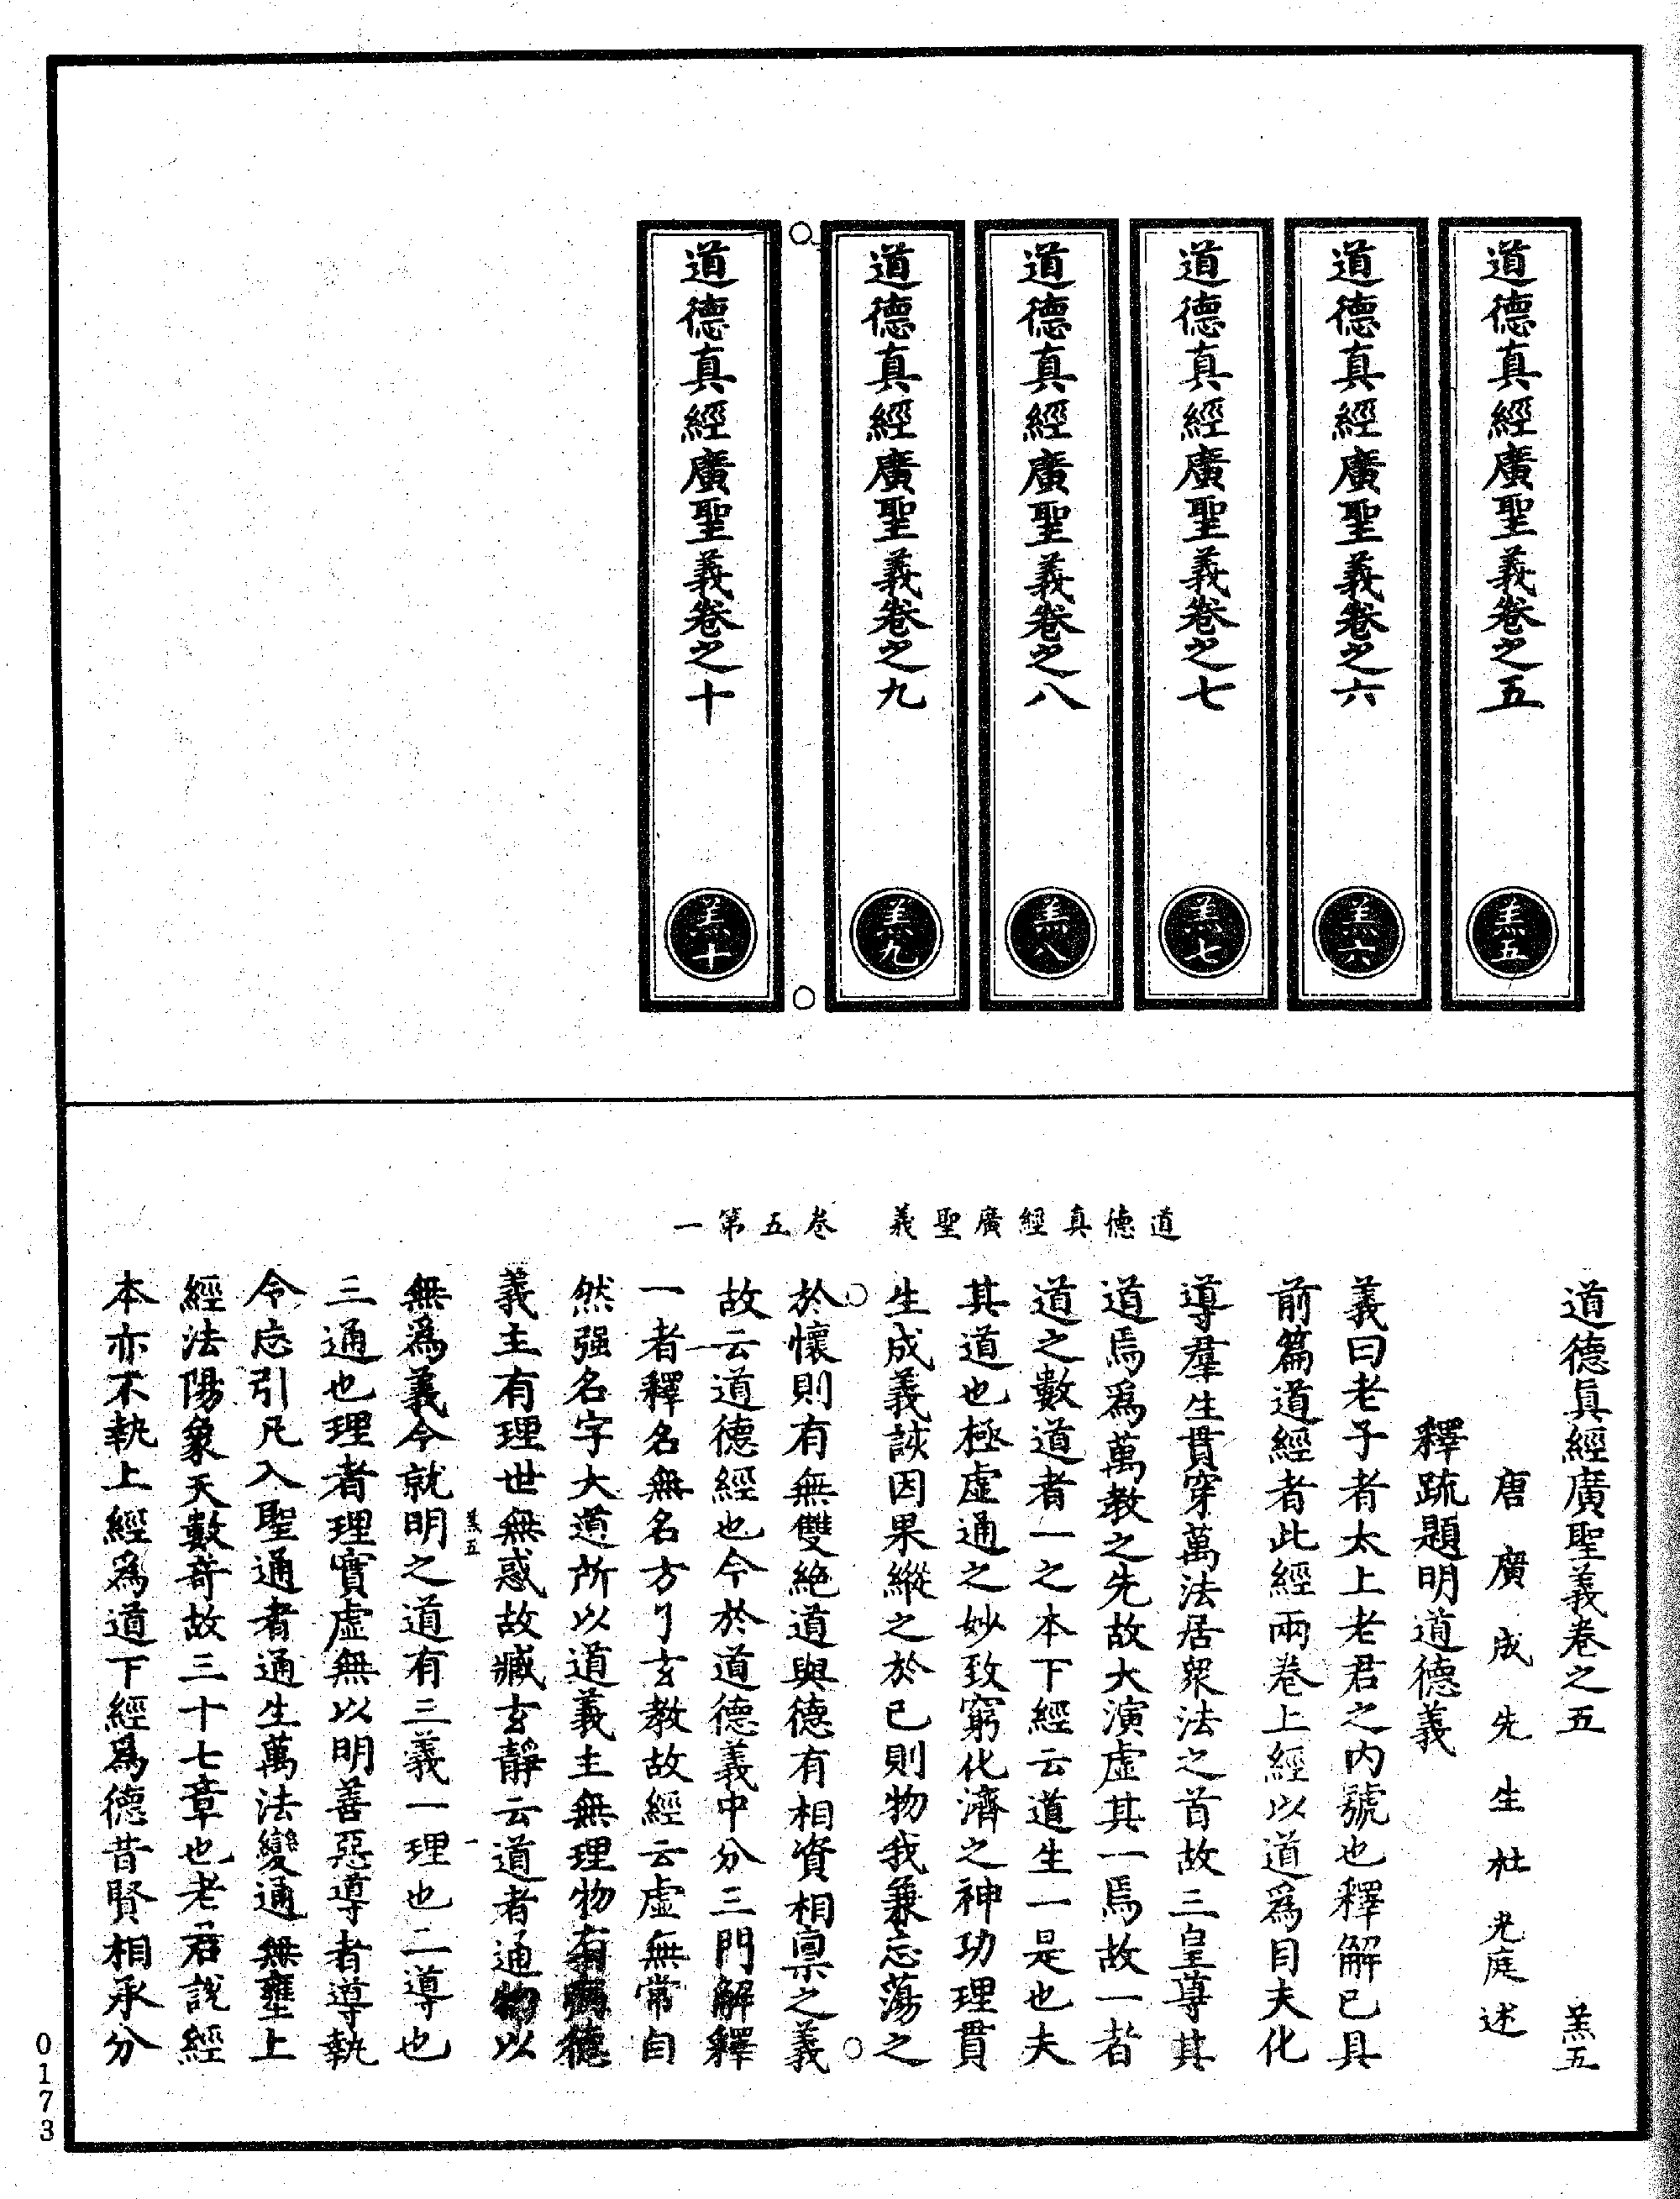 道德真經廣聖義卷之五 羔五
道德真經廣聖義卷之六 羔六
道德真經廣聖義卷之七 羔七
道德真經廣聖義卷之八 羔八
道德真經廣聖義卷之九 羔九
道德真經廣聖義卷之十 羔十
道德真經廣聖義 卷五第一
道德眞經廣聖義卷之五 羔五
唐廣成先生杜光庭述
釋疏題明道德義
義曰老子者太上老君之内號也釋解已具
前篇道經者此經兩卷上經以道爲目夫化
導羣生貫穿萬法居衆法之首故三皇尊其
道焉爲萬教之先故大演虛其一焉故一者
道之數道者一之本下經云道生一是也夫
其道也極虛通之妙致窮化濟之神功理貫
生成義該因果縱之於已則物我兼忘蕩之
於懷則有無雙絶道與德有相資相稟之義
故云道德經也今於道德義中分三門解釋
一者釋名無名方了玄教故經云虛無常自
然强名字大道所以道義主無理物有德
義主有理世無惑故臧玄靜云道者通物以
無爲義今就明之道有三義一理也二導也
羔五 一
三通也理者理實虛無以明善惡導者導執
令忘引凡入聖通者通生萬法變通無壅上
經法陽象天數奇故三十七章也老君說經
本亦不執上經爲道下經爲德昔賢相承分
0173